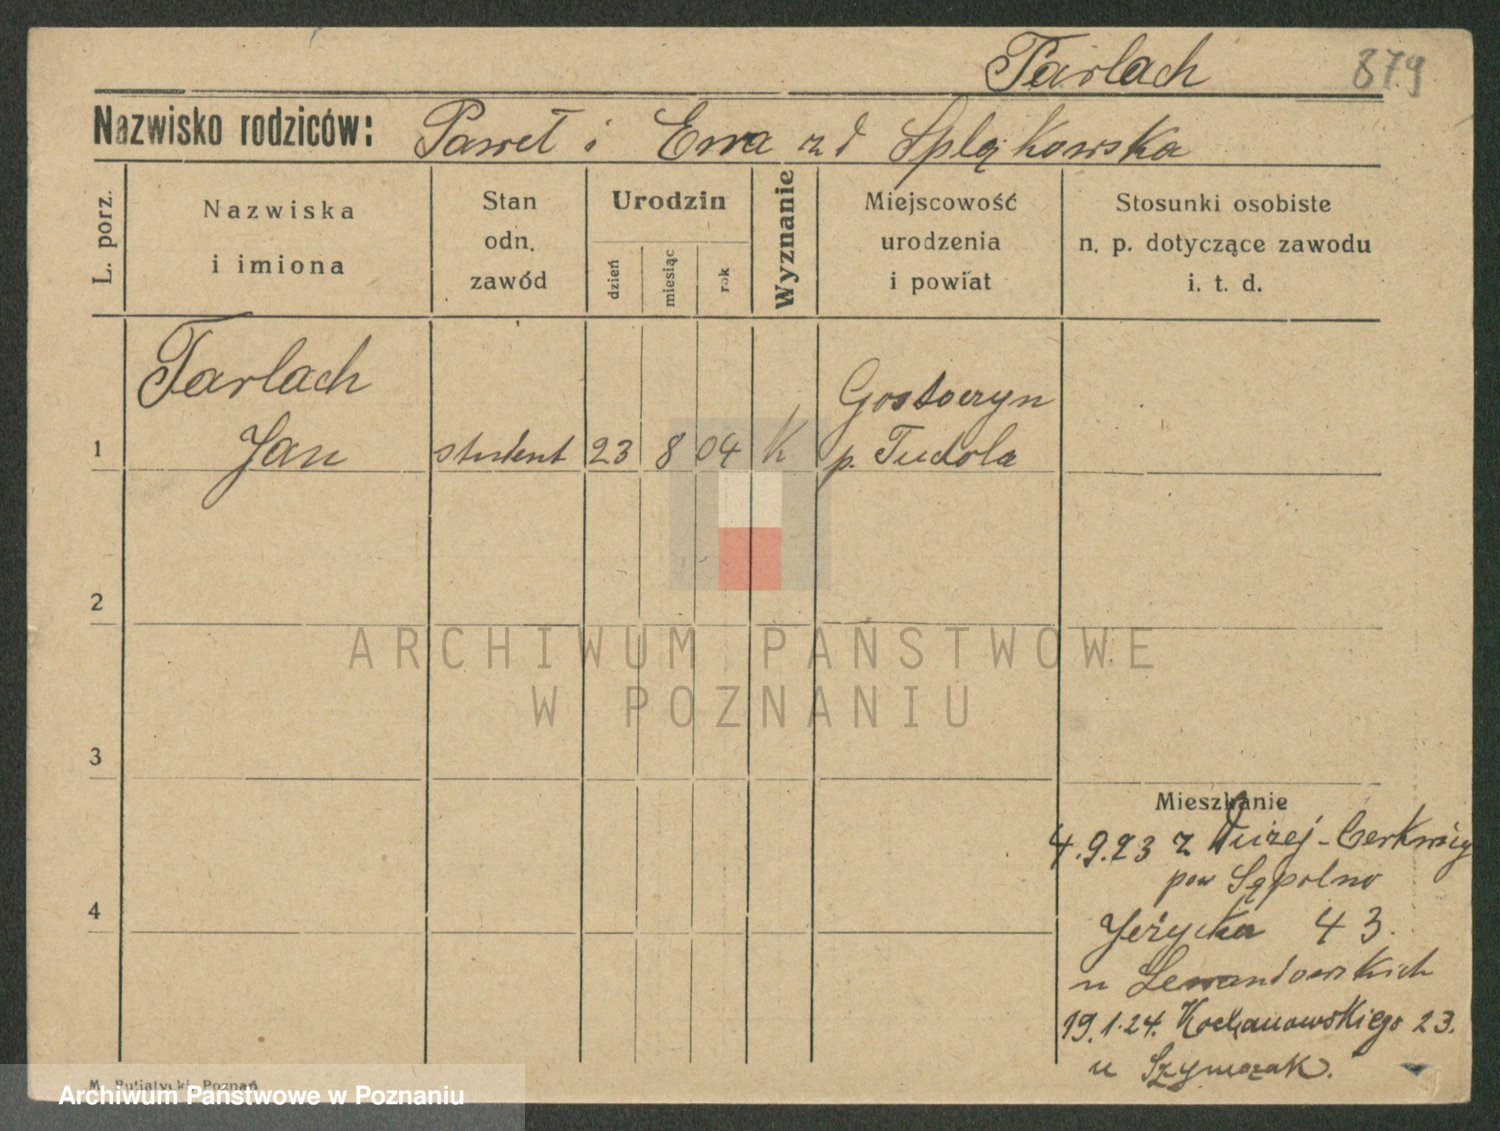 Tarlach 879
Nazwisko rodziców: Paweł i Ewa zd Splą kowska
L. porz.
Nazwiska
i imiona
Stan
odn.
zawód
Urodzin
dzień
miesiąc
rok
Wyznanie
Miejscowość
urodzenia
i powiat
Stosunki osobiste
n. p. dotyczące zawodu
i. t. d.
Tarlach
1 Jan student 23 8 04 K
Gostoczyn
p. Tuchola
2
ARCHIWUM PAŃSTWOWE
W POZNANIU
3
Mieszkanie
4.9.23 z Dużej-Cerkwicy
pow Sępolno
4
Jeżycka 43.
u Lewandowskich
19.1.24. Kochanowskiego 23.
u Szymczak.
M. Putiatycki, Poznań
Archiwum Państwowe w Poznaniu